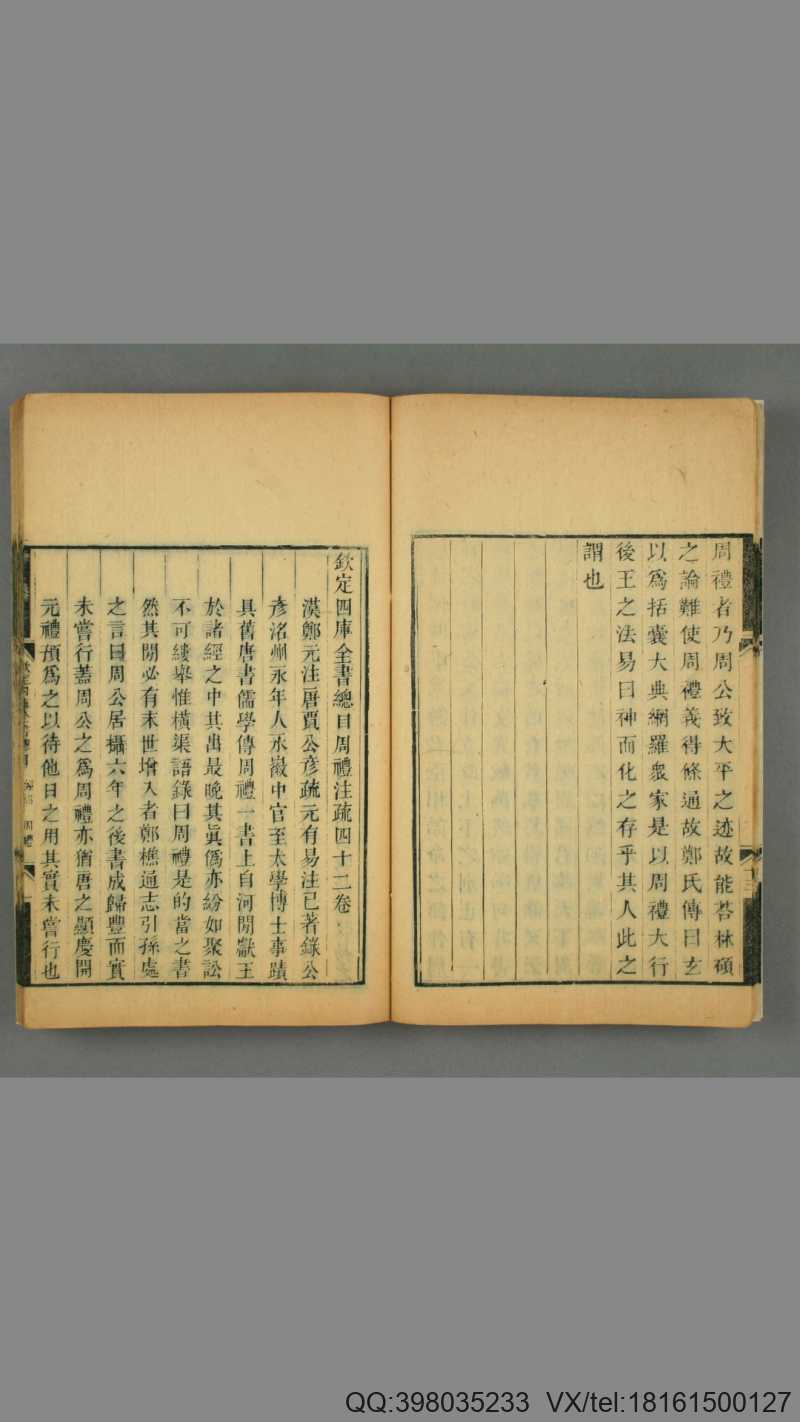 周禮者乃周公致大平之迹故能荅林碩
之論難使周禮義得條通故鄭氏傳曰玄
以爲括囊大典網羅衆家是以周禮大行
後王之法易曰神而化之存乎其人此之
謂也
欽定四庫全書總目周禮注疏四十二卷
漢鄭元注唐賈公彥疏元有易注已著錄公
彥洺州永年人永徽中官至太學博士事蹟
具舊唐書儒學傳周禮一書上自河閒獻王
於諸經之中其出最晚其眞僞亦紛如聚訟
不可縷舉惟橫渠語錄曰周禮是的當之書
然其閒必有末世增入者鄭樵通志引孫處
之言曰周公居攝六年之後書成歸豐而實
未嘗行蓋周公之爲周禮亦猶唐之顯慶開
元禮預爲之以待他日之用其實未嘗行也
QQ:398035233 VX/tel:18161500127